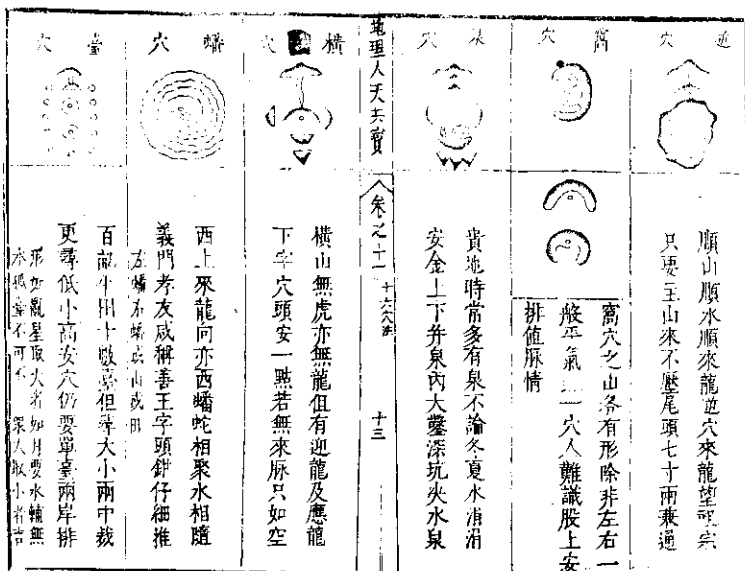 逆穴
順山順水順來龍逆穴來龍望祖宗
只要主山來不壓尾頭七寸兩兼通
窩穴
窩穴之山各有形除非左右一
般平氣一穴人難識股上安
排值脈情
泉穴
貴地時常多有泉不論冬夏水涓涓
安金上下并泉內大鑿深坑夾水泉
地理人天共寶
卷之十一
十六穴法
十三
橫穴
橫山無虎亦無龍但有迎龍及應龍
下字穴頭安一點若無來脉只如空
蟠穴
西上來龍向亦西蟠蛇相聚水相隨
義門孝友咸稱善王字頭鉗仔細推
左蟠右蟠或山或田
臺穴
百大小兩中裁
更尋低小高安穴仍要單臺兩岸排
形如亂星取大者如月要水輔無
水孤臺不可下眾大取小者吉